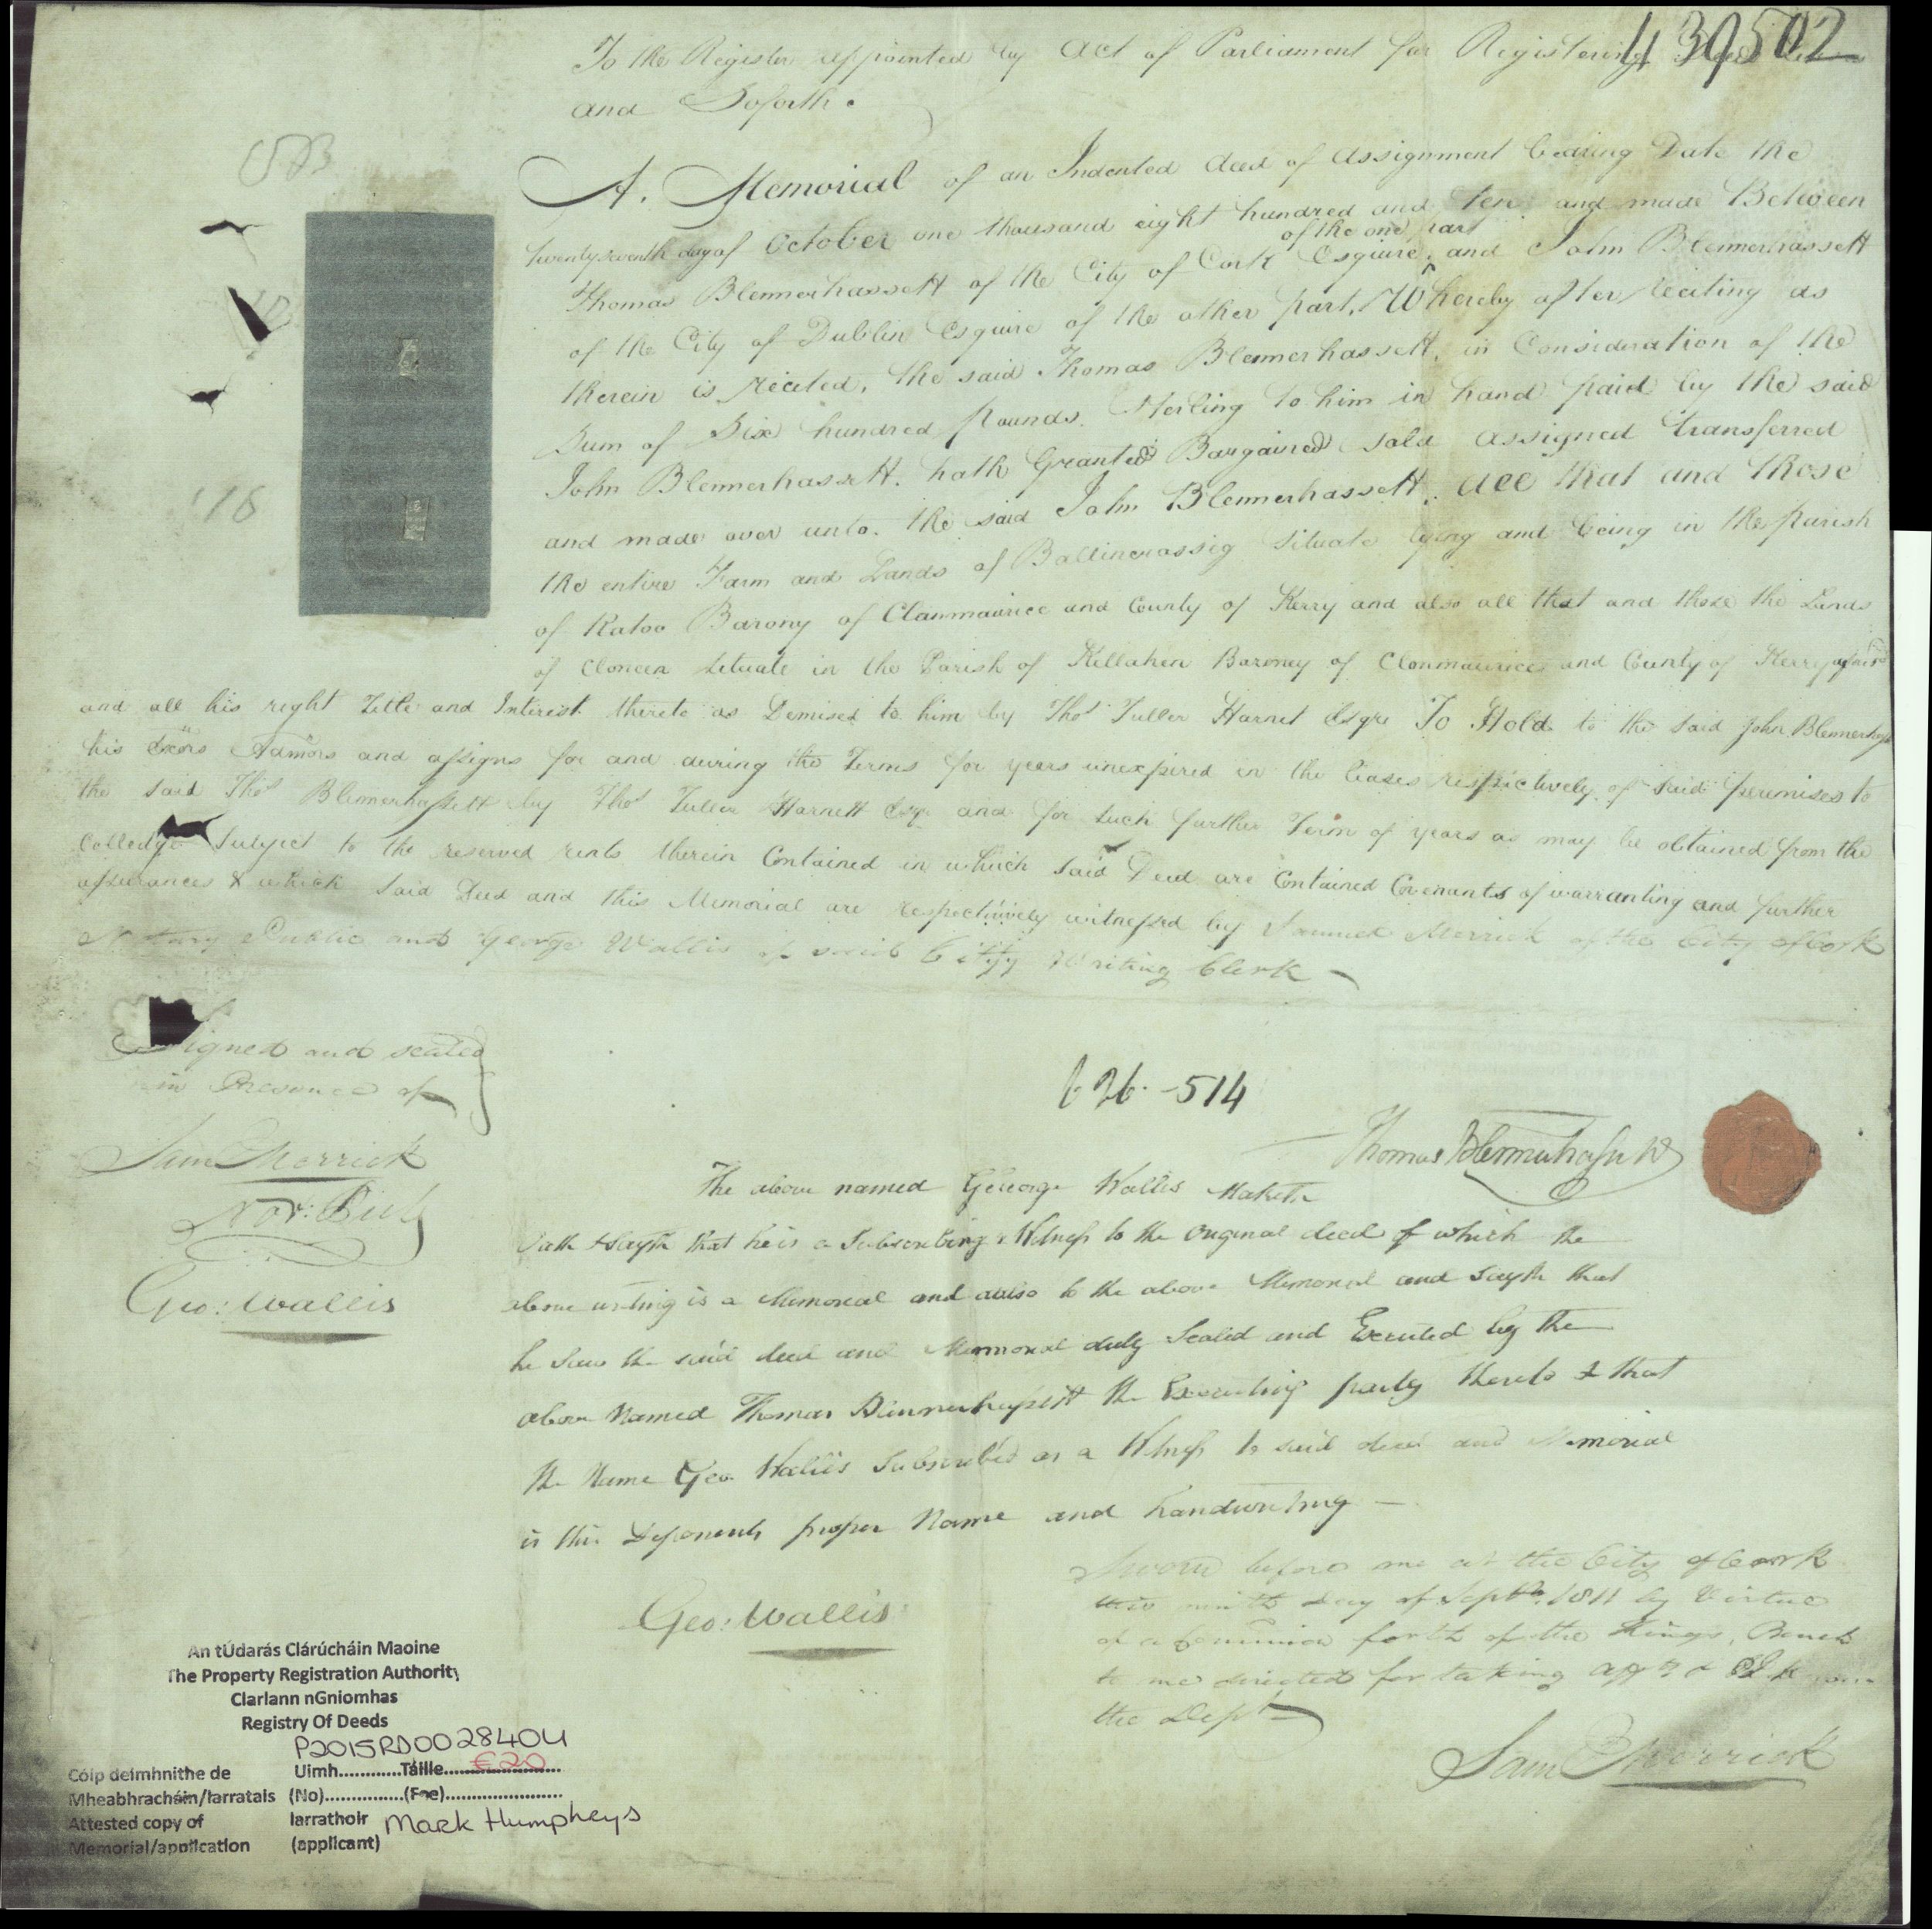 439502
To the Register appointed by Act of Parliament for Registering Deeds
and Soforth.
A. Memorial of an Indented deed of assignment bearing Date the
twenty seventh day of October one thousand eight hundred and ten and made Between
of the one part
Thomas Blennerhassett of the City of Cork Esquire, and John Blennerhassett
of the City of Dublin Esquire of the other part, Whereby after reciting as
therein is recited, the said Thomas Blennerhassett, in Consideration of the
Sum of Six hundred Pounds Sterling to him in hand paid by the said
John Blennerhassett. hath Granted Bargained sold assigned transferred
and made over unto. the said John Blennerhassett, all that and those
the entire Farm and Lands of Ballincrossig situate lying and being in the parish
of Ratoo Barony of Clanmaurice and County of Kerry and also all that and those the Lands
of Cloncen situate in the Parish of Killahen Baroney of Clonmaurice and County of Kerry afores'd
and all his right Title and Interest thereto as Demised to him by Thos Fuller Harnet Esqre To Hold to the said John Blennerhasst
his Exors Admors and assigns for and during the Terms for years unexpired in the leases respectively of said premises to
the said Thos Blennerhassett by Thos Fuller Harnett Esqr and for such further Term of years as may be obtained from the
Colledge Subject to the reserved rents therein Contained in which said Deed are Contained Covenants of warranting and further
assurances & which said Deed and this Memorial are respectively witnessed by Samuel Merrick of the City of Cork
Notary Public and George Wallis of said City Writing Clerk
Signed and sealed
in Presence of
Sam Merrick
Not: Pub
Geo: Wallis
626-514
Thomas Blennerhassett
The above named Geeorge Wallis Maketh
Oath & Sayth that he is a Subscribing Witness to the Original deed of which the
above writing is a Memorial and aulso to the above Memorial and Sayth that
he saw the said deed and Memorial duly Sealed and Executed by the
above Named Thomas Blennerhassett the Executing party thereto & that
the Name Geo Wallis Subscribed as a Witness to said deed and Memorial
is this Deponents proper Name and handwriting
Geo: Wallis
Sworn before me at the City of Cork
this ninth day of Septbr. 1811 by Virtue
of a Commission forth of the Kings Bench
to me directed for taking affts & I know
the Dept
Sam Merrick
An tÚdarás Clárúcháin Maoine
The Property Registration Authority
Clarlann nGniomhas
Registry Of Deeds
P2015RD002840U
Cóip deimhnithe de Uimh............Táille €20
Mheabhracháin/Iarratais (No)................(Fee)........................
Attested copy of Iarrathoir Mark Humphrys
Memorial/application (applicant)